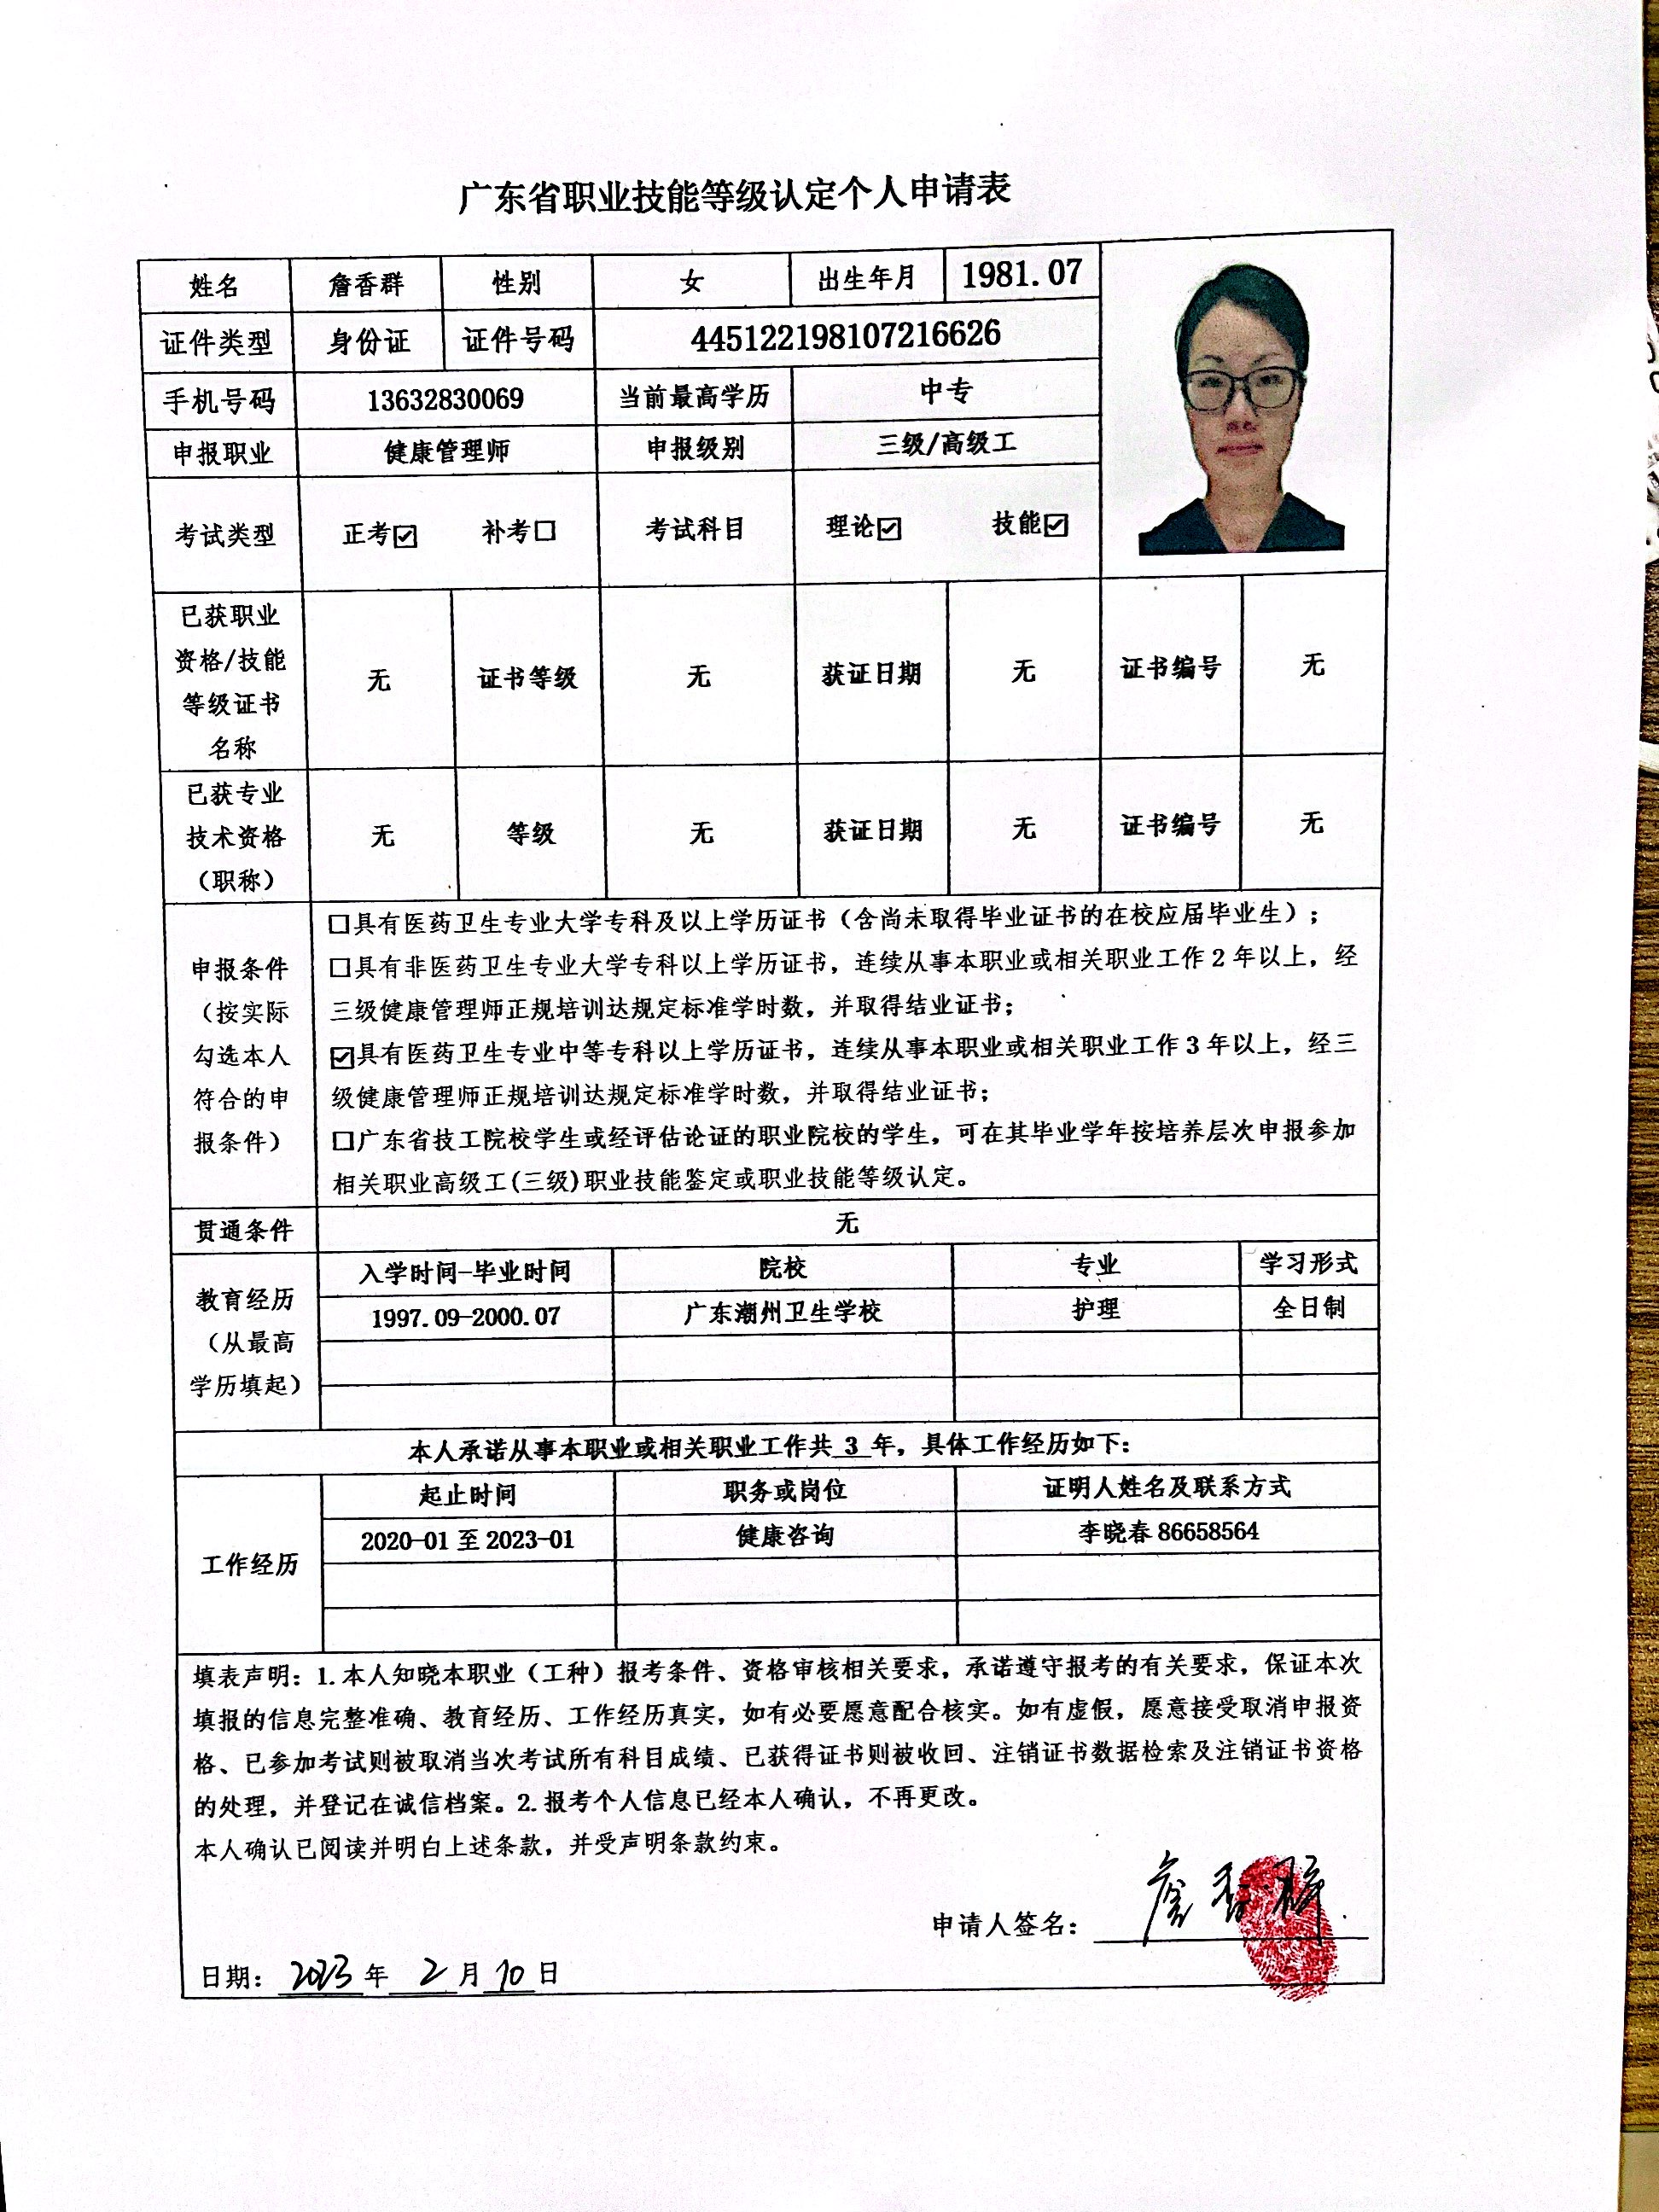 广东省职业技能等级认定个人申请表
姓名 詹香群 性别 女 出生年月 1981.07
证件类型 身份证 证件号码 445122198107216626
手机号码 13632830069 当前最高学历 中专
申报职业 健康管理师 申报级别 三级/高级工
考试类型 正考☑ 补考☐ 考试科目 理论☑ 技能☑
已获职业
资格/技能
等级证书
名称
无 证书等级 无 获证日期 无 证书编号 无
已获专业
技术资格
（职称）
无 等级 无 获证日期 无 证书编号 无
申报条件
（按实际
勾选本人
符合的申
报条件）
☐具有医药卫生专业大学专科及以上学历证书（含尚未取得毕业证书的在校应届毕业生）；
☐具有非医药卫生专业大学专科以上学历证书，连续从事本职业或相关职业工作2年以上，经
三级健康管理师正规培训达规定标准学时数，并取得结业证书；
☑具有医药卫生专业中等专科以上学历证书，连续从事本职业或相关职业工作3年以上，经三
级健康管理师正规培训达规定标准学时数，并取得结业证书；
☐广东省技工院校学生或经评估论证的职业院校的学生，可在其毕业学年按培养层次申报参加
相关职业高级工(三级)职业技能鉴定或职业技能等级认定。
贯通条件 无
教育经历
（从最高
学历填起）
入学时间-毕业时间 院校 专业 学习形式
1997.09-2000.07 广东潮州卫生学校 护理 全日制
本人承诺从事本职业或相关职业工作共 3 年，具体工作经历如下：
工作经历
起止时间 职务或岗位 证明人姓名及联系方式
2020-01 至 2023-01 健康咨询 李晓春 86658564
填表声明：1.本人知晓本职业（工种）报考条件、资格审核相关要求，承诺遵守报考的有关要求，保证本次
填报的信息完整准确、教育经历、工作经历真实，如有必要愿意配合核实。如有虚假，愿意接受取消申报资
格、已参加考试则被取消当次考试所有科目成绩、已获得证书则被收回、注销证书数据检索及注销证书资格
的处理，并登记在诚信档案。2.报考个人信息已经本人确认，不再更改。
本人确认已阅读并明白上述条款，并受声明条款约束。
申请人签名：詹香群
日期：2023 年 2 月 10 日